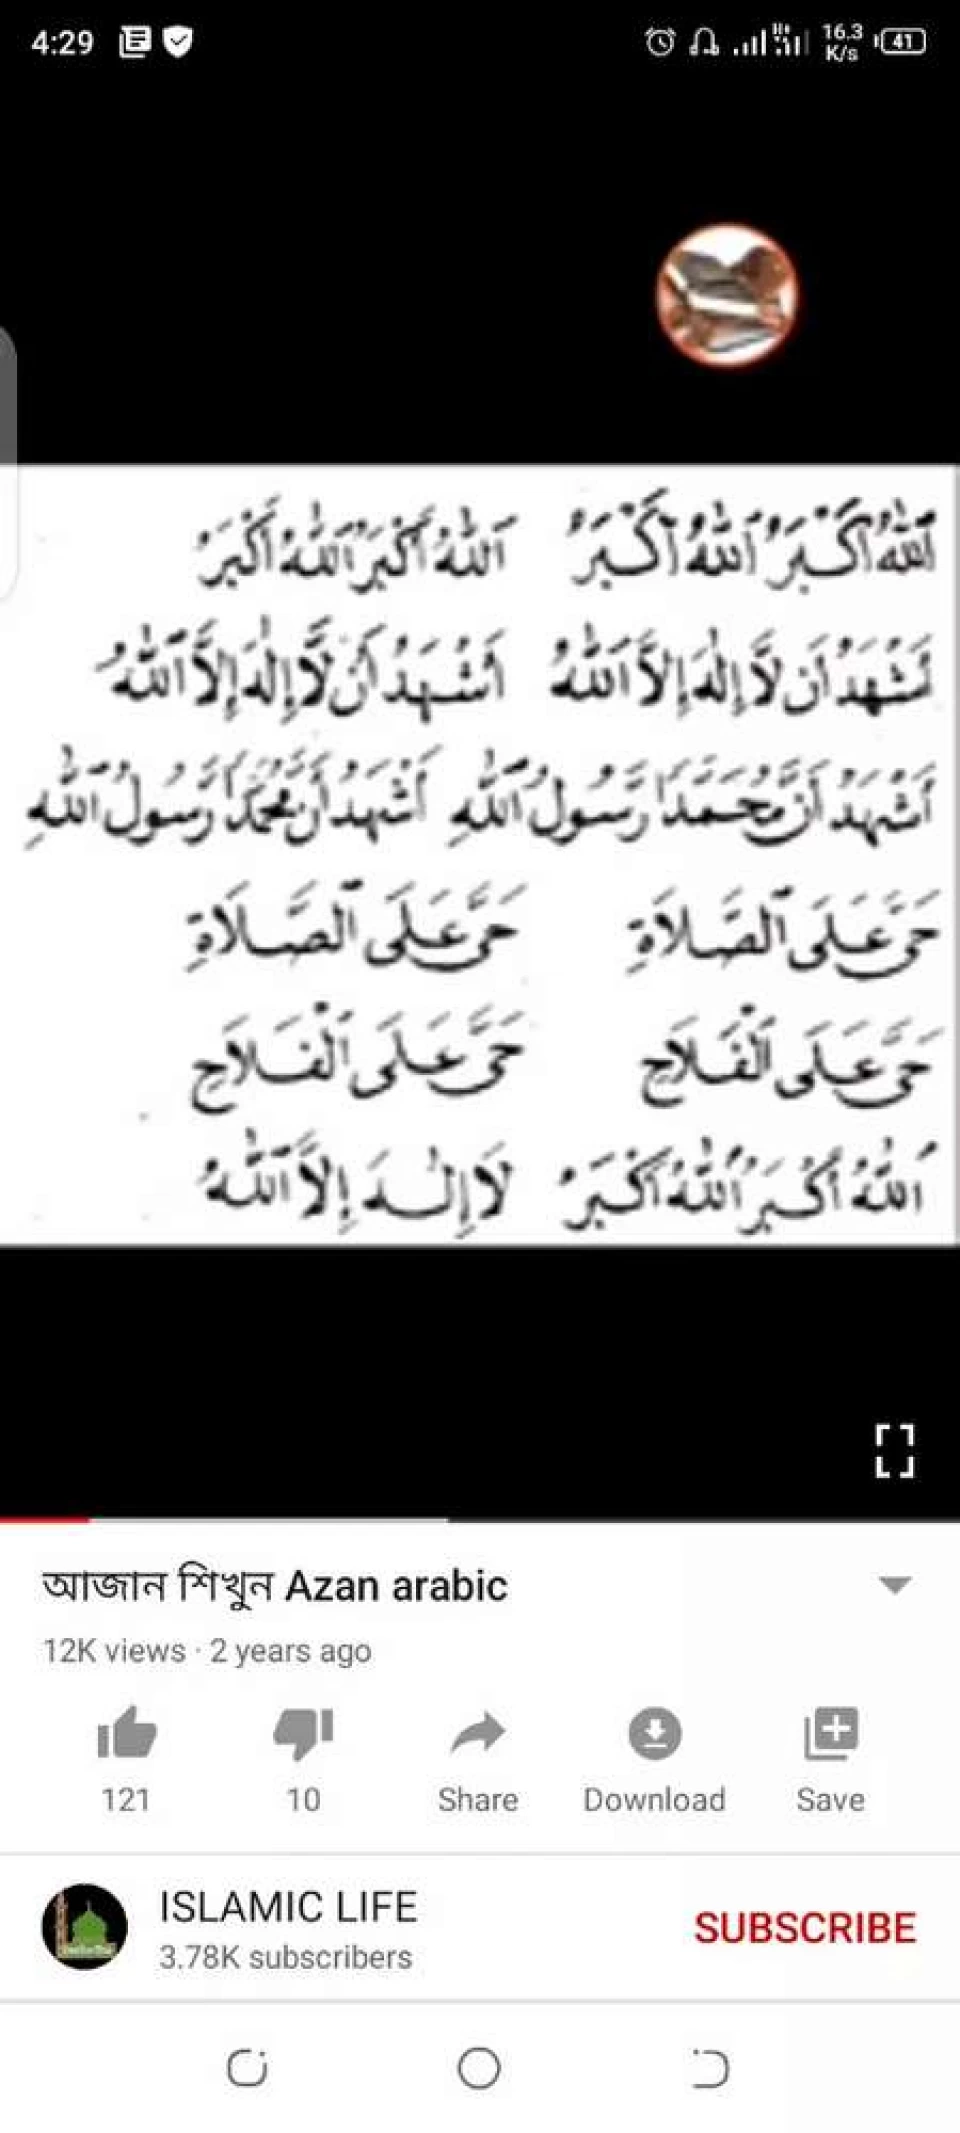 4:29
16.3 K/s
41
اَللّٰهُ اَكْبَرُ اَللّٰهُ اَكْبَرُ اَللّٰهُ اَكْبَرُ اَللّٰهُ اَكْبَرُ
اَشْهَدُ اَنْ لَّا إِلٰهَ إِلَّا اللّٰهُ اَشْهَدُ اَنْ لَّا إِلٰهَ إِلَّا اللّٰهُ
اَشْهَدُ اَنَّ مُحَمَّدًا رَّسُوْلُ اللّٰهِ اَشْهَدُ اَنَّ مُحَمَّدًا رَّسُوْلُ اللّٰهِ
حَىَّ عَلَى الصَّلَاةِ حَىَّ عَلَى الصَّلَاةِ
حَىَّ عَلَى الْفَلَاحِ حَىَّ عَلَى الْفَلَاحِ
اَللّٰهُ اَكْبَرُ اَللّٰهُ اَكْبَرُ لَا إِلٰهَ إِلَّا اللّٰهُ
আজান শিখুন Azan arabic
12K views · 2 years ago
121 10 Share Download Save
ISLAMIC LIFE
3.78K subscribers
SUBSCRIBE